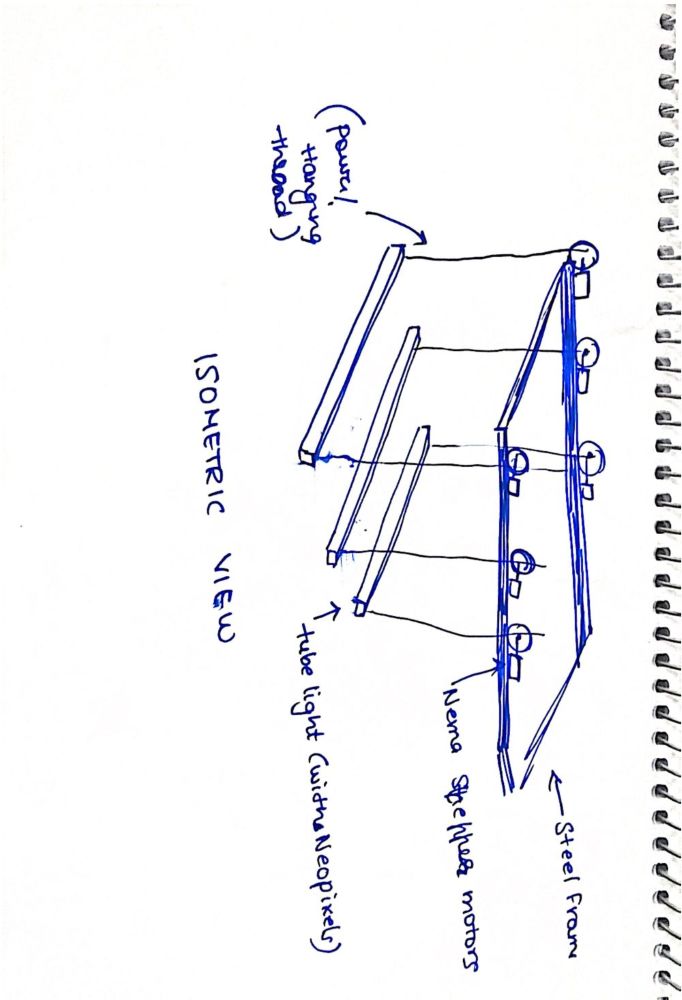 Steel Frame
Nema Stepper motors
(power/
Hanging
thread)
tube light (with Neopixels)
ISOMETRIC VIEW